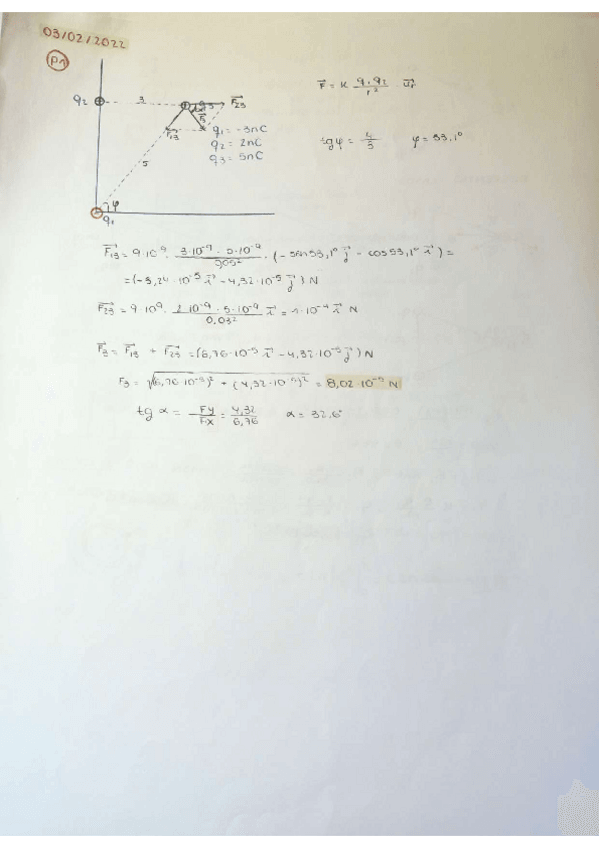 03/02/2022
P1
F⃗ = K q1 q2 / r² · u⃗r
q2 3 F⃗23
F⃗13 F⃗3
q1 = -3nC
q2 = 2nC
q3 = 5nC
tgφ = 4/3 φ = 53,1°
5
φ
q1
F⃗13 = 9·10⁹ · 3·10⁻⁹ · 5·10⁻⁹ / 0,05² · (- sen53,1° j⃗ - cos53,1° i⃗) =
= (-3,24·10⁻⁵ i⃗ - 4,32·10⁻⁵ j⃗) N
F⃗23 = 9·10⁹ · 2·10⁻⁹ · 5·10⁻⁹ / 0,03² i⃗ = 1·10⁻⁴ i⃗ N
F⃗3 = F⃗13 + F⃗23 = (6,76·10⁻⁵ i⃗ - 4,32·10⁻⁵ j⃗) N
F3 = √(6,76·10⁻⁵)² + (4,32·10⁻⁵)² = 8,02·10⁻⁵ N
tg α = Fy/Fx = 4,32/6,76 α = 32,6°